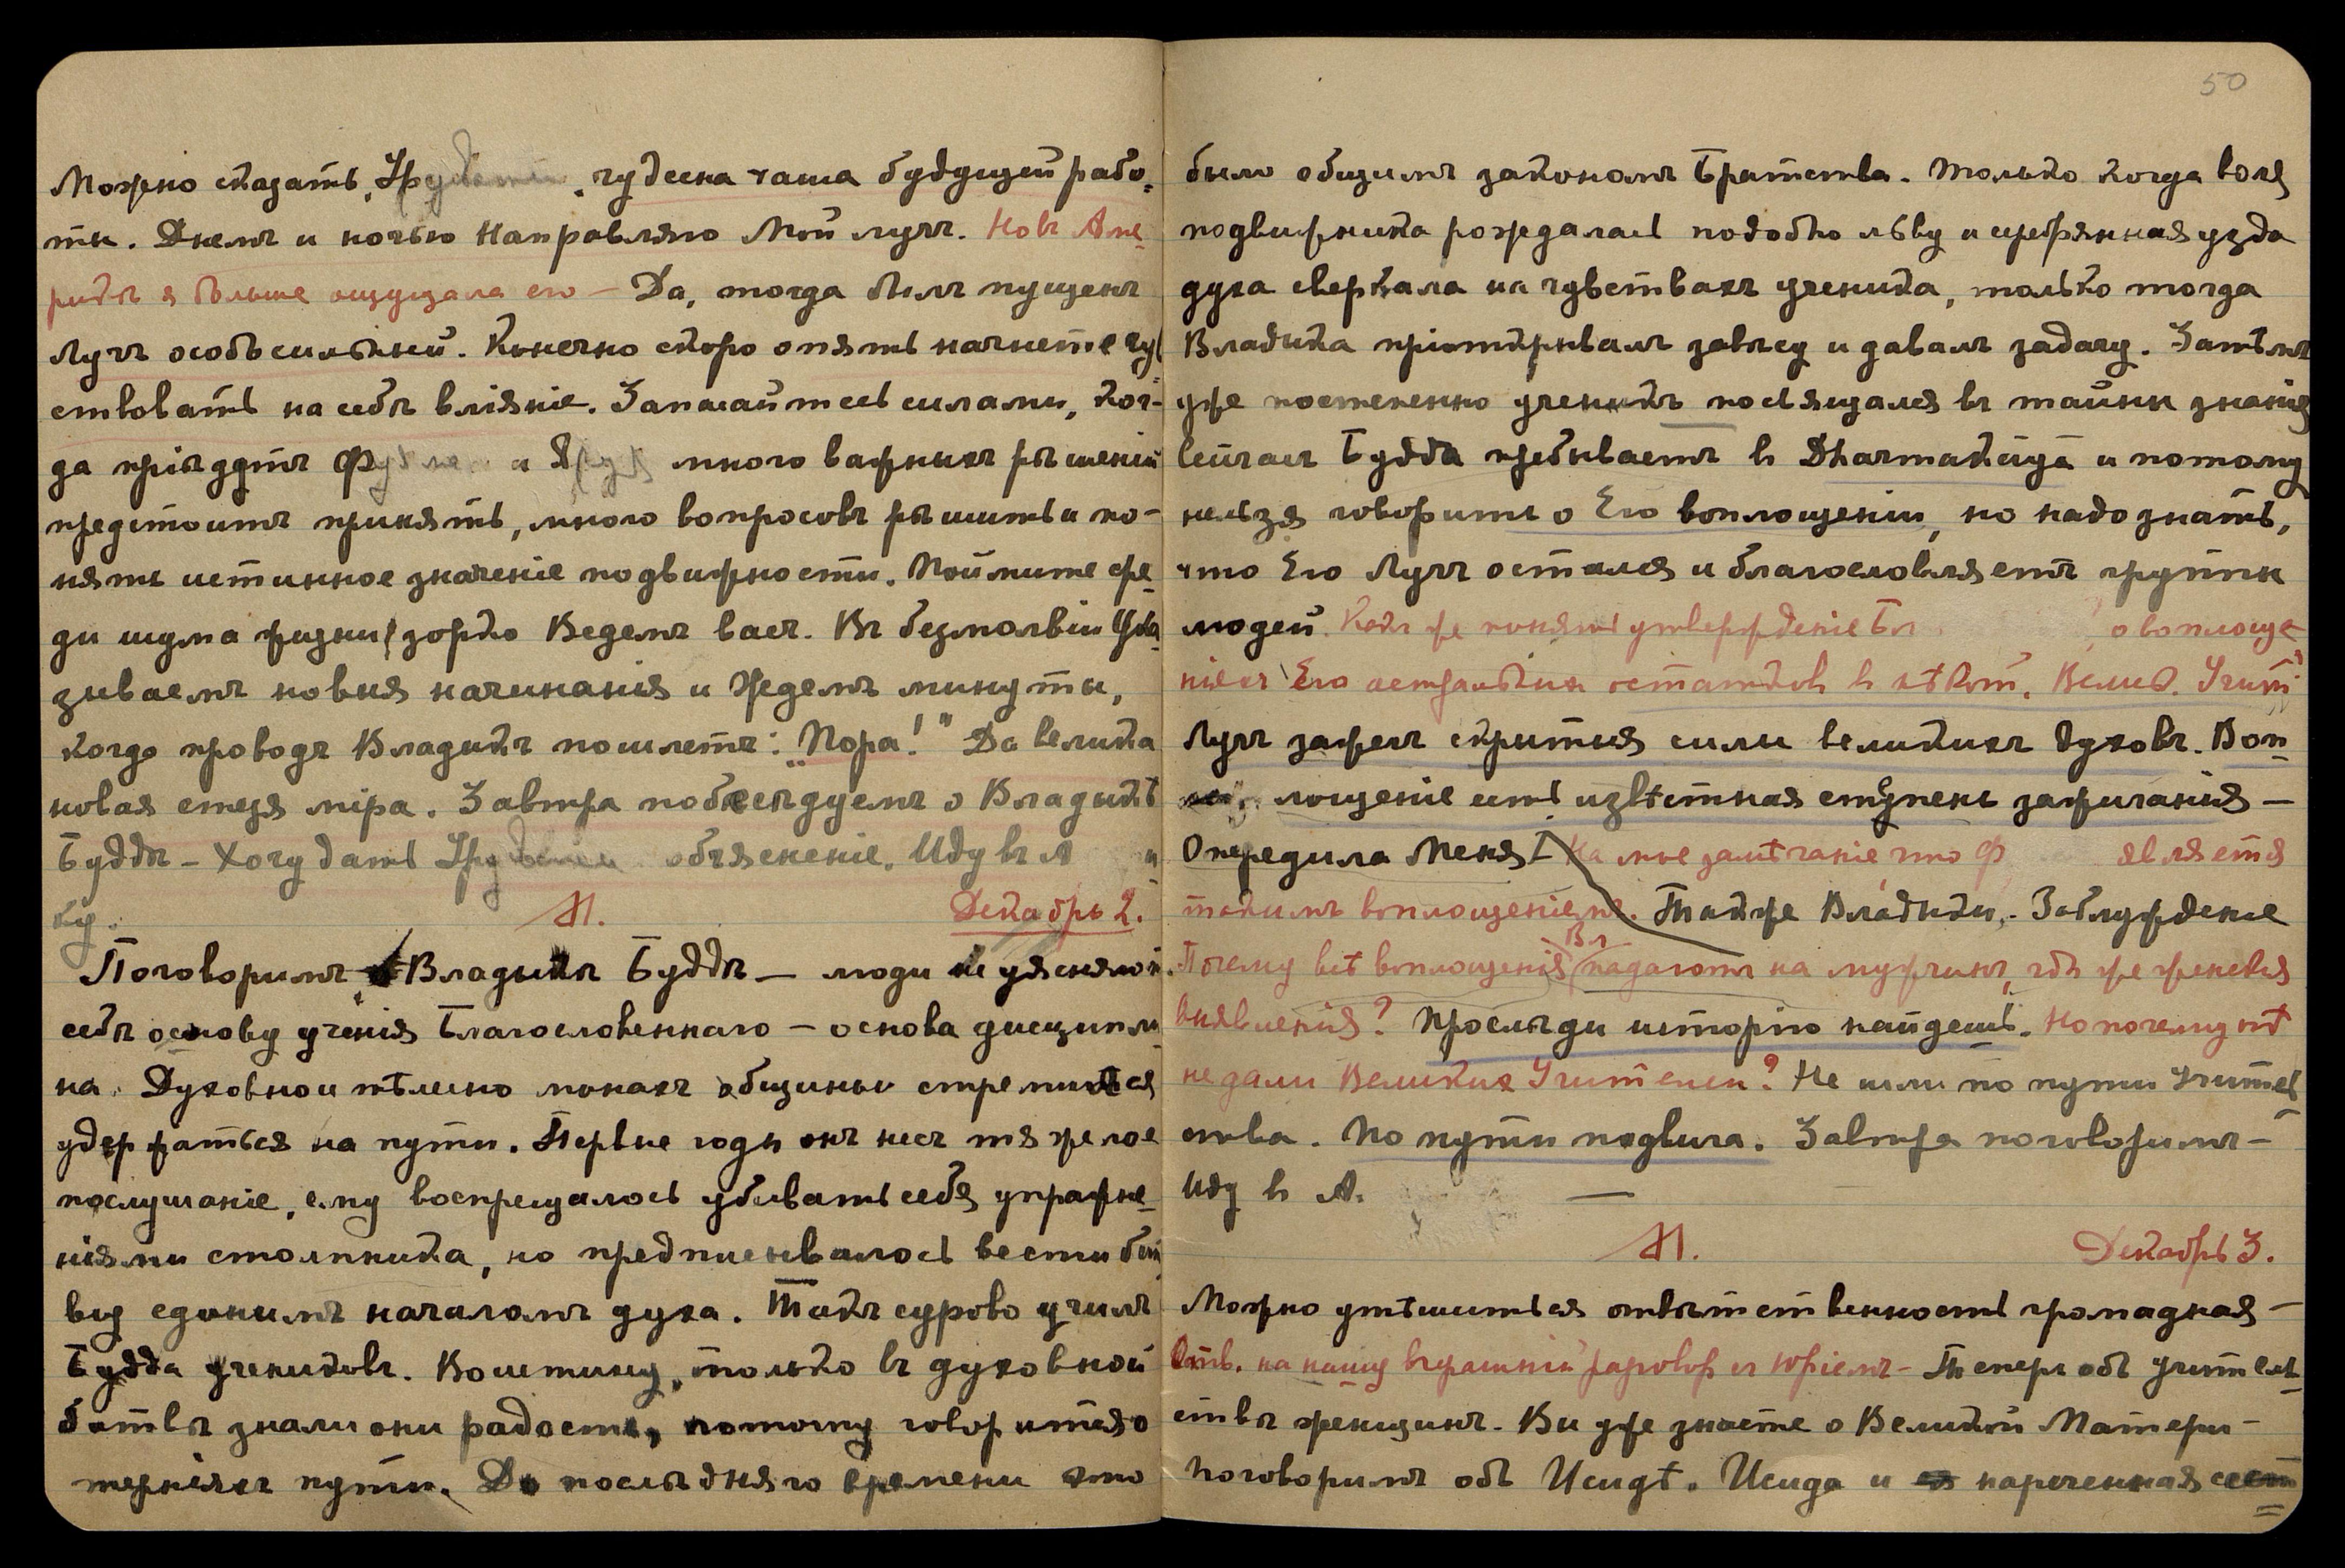 Можно сказать, чудесна чаша будущей рабо-
ты. Днемъ и ночью направляю Мой лучъ. Но въ Аме-
рикѣ я больше ощущала его — Да, тогда былъ пущенъ
Лучъ особ сильный. Конечно скоро опять начнете чув
ствовать на себѣ вліяніе. Запасайтесь силами, ког-
да пріѣдутъ и много важныхъ рѣшеній
предстоитъ принять, много вопросовъ рѣшить и по-
нять истинное значеніе подвижности. Поймите сре-
ди шума жизни, зорко Ведемъ васъ. Въ безмолвіи Ука-
зываемъ новыя начинанія и Ждемъ минуты,
когда проводъ Владыкъ пошлетъ: „Пора!" Да велика
новая стезя міра. Завтра побесѣдуемъ о Владыкѣ
Буддѣ — Хочу дать объясненіе. Иду въ А
ку.
М. Декабрь 2.
Поговоримъ о Владыкѣ Буддѣ — люди не уясняютъ
себѣ основу ученія Благословеннаго — основа дисципли-
на. Духовно и тѣлесно монахъ общины стремился
удержаться на пути. Первые годы онъ несъ тяжелое
послушаніе, ему воспрещалось убивать себя упражне-
ніями столпника, но предписывалось вести бит
ву единымъ началомъ духа. Такъ сурово училъ
Будда учениковъ. Воистину, только въ духовной
битвѣ знали они радость, потому говорится о
терніяхъ пути. До послѣдняго времени это
50
было общимъ закономъ Братства. Только когда воля
подвижника рождалась подобно льву и серебрянная узда
духа сверкала на чувствахъ ученика, только тогда
Владыка пріоткрывалъ завѣсу и давалъ задачу. Затѣмъ
уже постепенно ученикъ посвящался въ тайны знанія
сейчасъ Будда пребываетъ въ Dharmakaya и потому
нельзя говорить о Его воплощеніи, но надо знать,
что Его Лучъ остался и благословляетъ группы
людей. Какъ же понять утвержденіе Бл о воплоще-
ніяхъ Его астральныхъ остатковъ в нѣкот. Велик. Учит.
Лучъ зажегъ скрытыя силы великихъ духовъ. Воп-
лощеніе есть извѣстная ступень зажиганія —
Опередила Меня На мое замѣчаніе что Ф является
такимъ воплощеніемъ. Также Владыки. Заблужденіе
Почему всѣ воплощенія Вл падаютъ на мужчинъ, гдѣ же женскія
выявленія? Прослѣди исторію найдешь. Но почему нѣ
не дали Великихъ Учителей? Не шли по пути Учитель
ства. По пути подвига. Завтра поговоримъ —
Иду в А. —
М. Декабрь 3.
Можно утѣшиться отвѣтственность громадная —
Отв. на нашу вчерашній разговоръ съ Юріемъ — Теперь объ учитель-
ствѣ женщинъ. Вы уже знаете о Великой Матери —
поговоримъ объ Исидѣ. Исида и нареченная сест